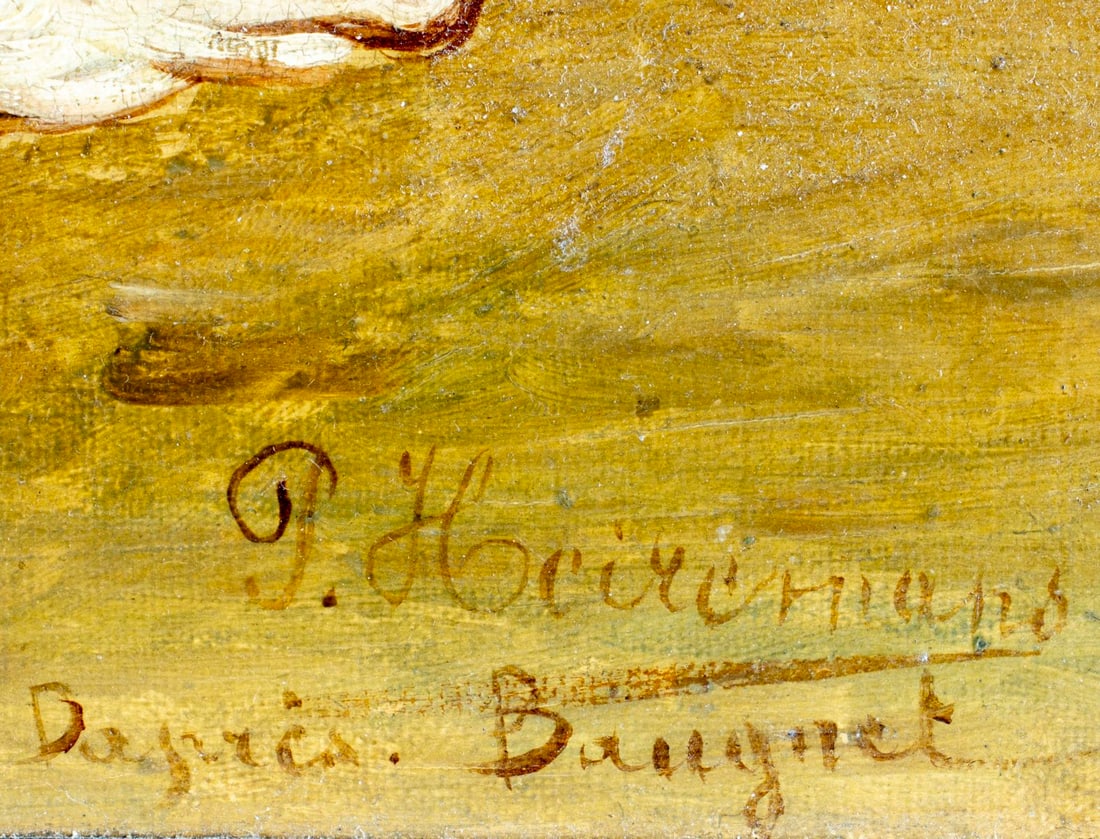 P. Heiremans
Daprès. Baugnet